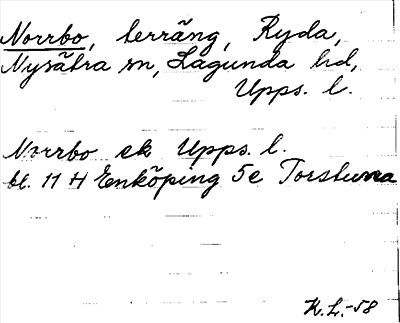 Norrbo, terräng, Ryda,
Nysätra sn, Lagunda hd,
Upps. l.
Norrbo ek Upps. l.
bl. 11 H Enköping 5e Torstuna
K.L.-58